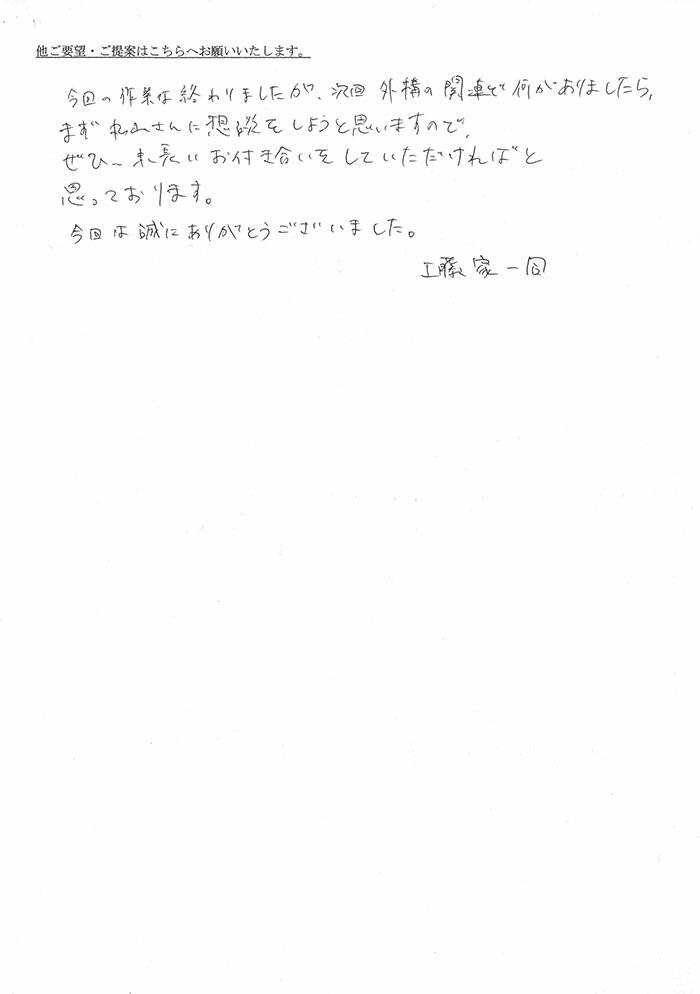 他ご要望・ご提案はこちらへお願いいたします。
今回の作業は終わりましたが、次回 外構の関連で何がありましたら、
まず 松山さんに想談をしようと思いますので、
ぜひ 末長い お付き合いをしていただければと
思っております。
今回は誠にありがとうございました。
工藤家一同